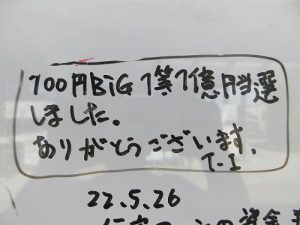 100円BiG 1等1億円当選
しました。
ありがとうございます。
T-I
22.5.26